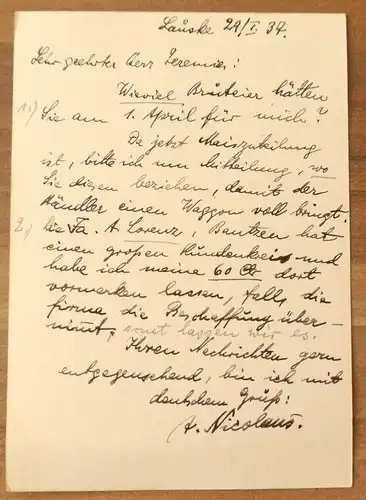 Lauske 29/I. 37.
Sehr geehrter Herr Jeremias:
Wieviel Bruteier hätten
1.) Sie am 1. April für mich?
Da jetzt Maiszuteilung
ist, bitte ich um Mitteilung, wo
Sie diesen beziehen, damit der
Händler einen Waggon voll bringt.
2.) Die Fa. A. Lorenz, Bautzen hat
einen großen Kundenkreis und
habe ich meine 60 Ctr. dort
vormerken lassen, falls die
Firma die Beschaffung über-
nimt, sonst lassen wir es.
Ihren Nachrichten gern
entgegensehend, bin ich mit
deutschem Gruß:
A. Nicolaus.